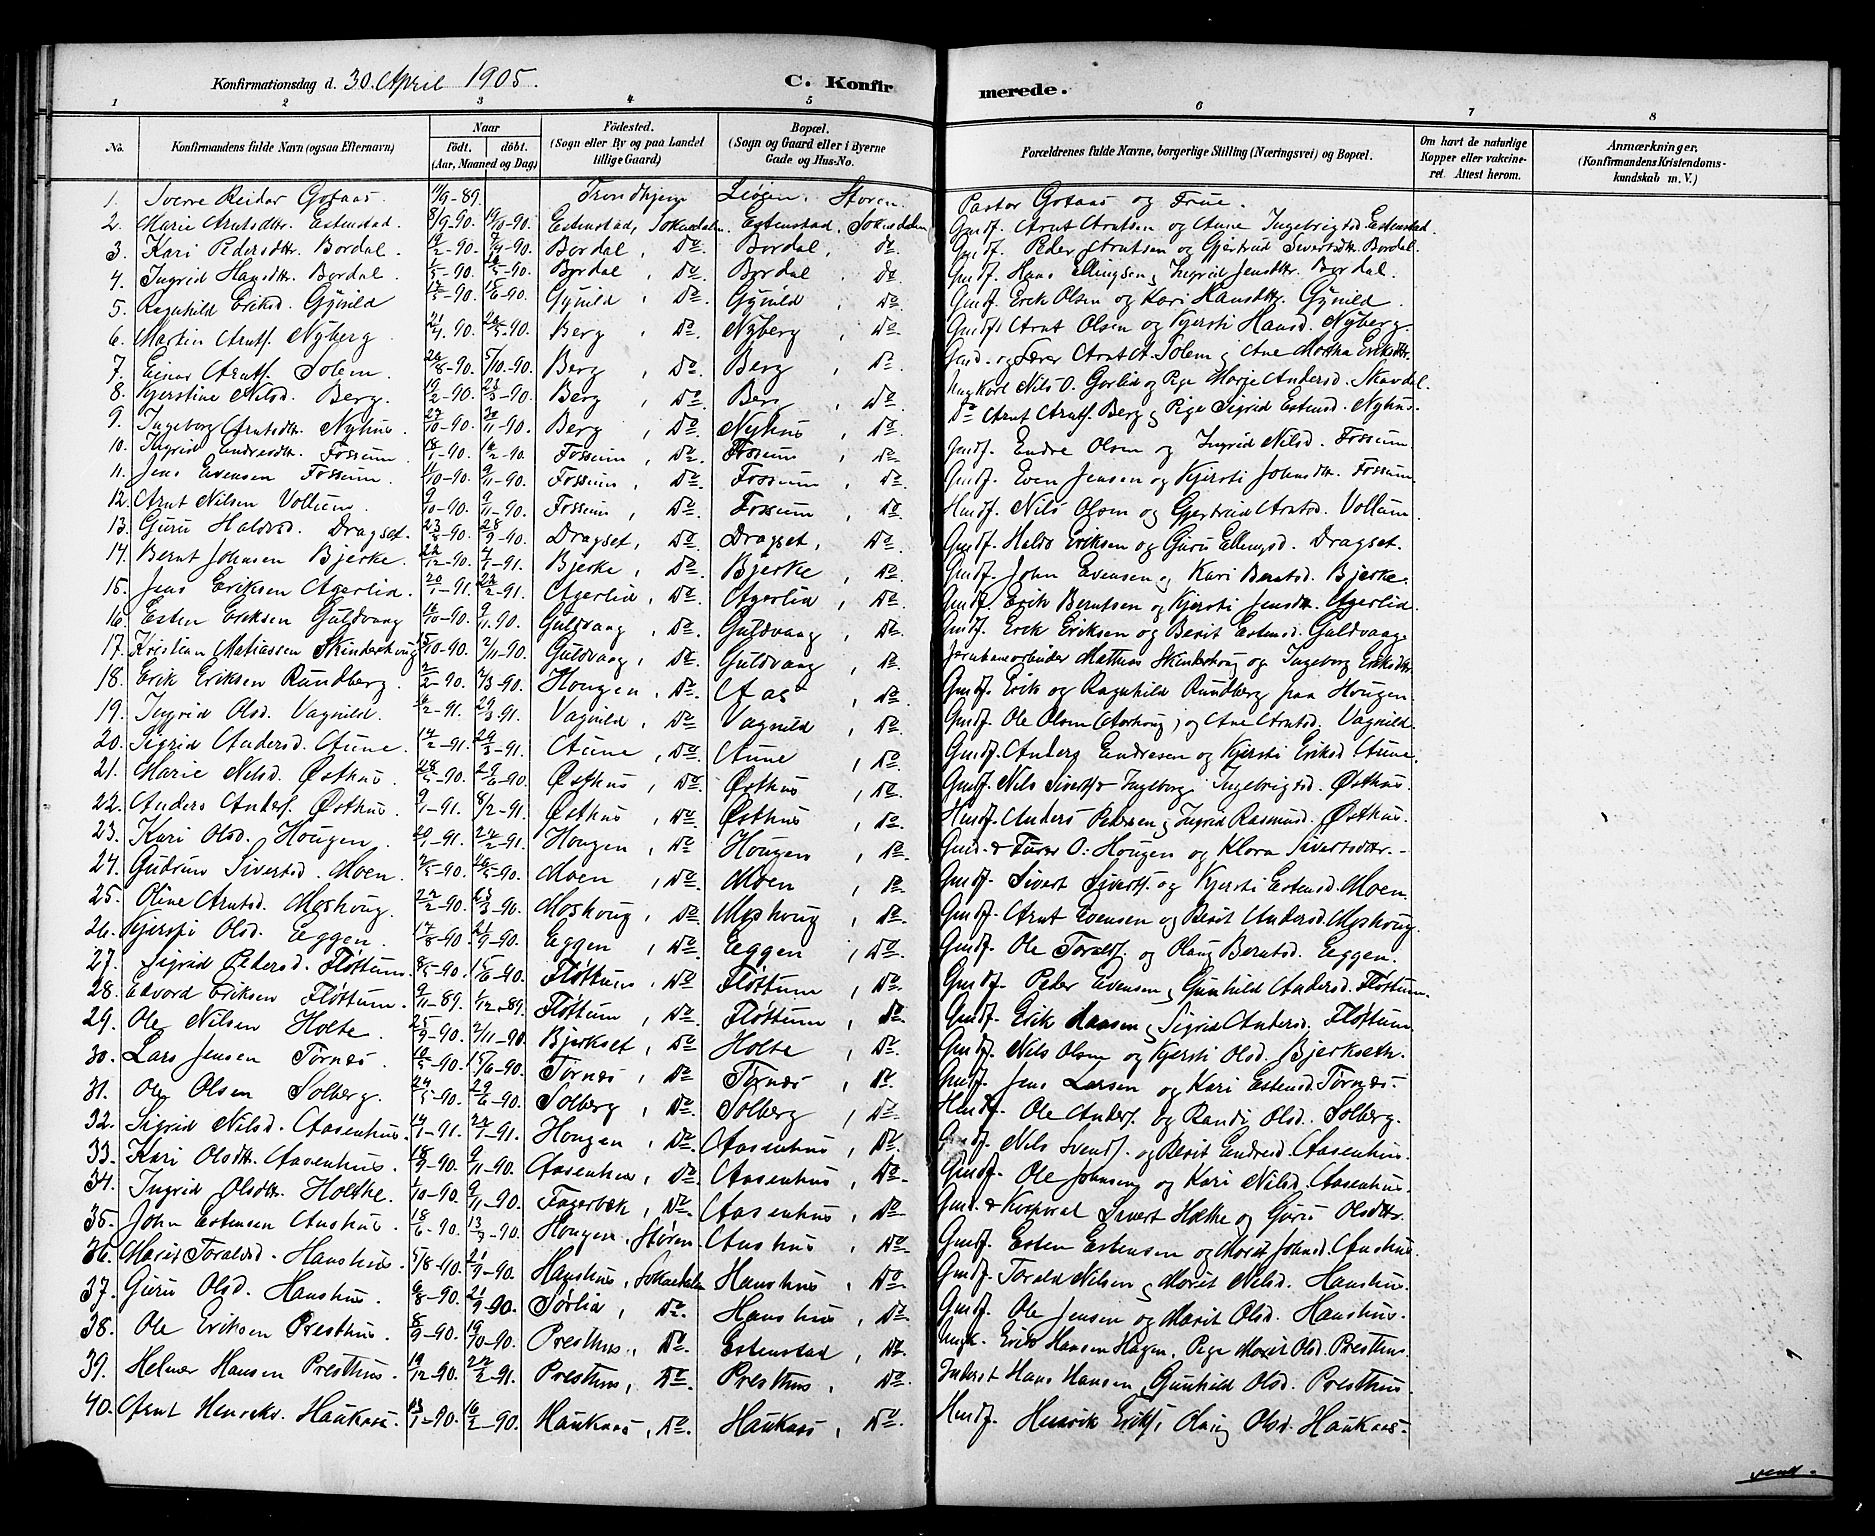 Konfirmationsdag d. 30. April 1905. C. Konfir merede.
1 2 3 4 5 6 7 8
No. Konfirmandens fulde Navn (ogsaa Efternavn) Naar födt. döbt. (Aar, Maaned og Dag) Födested. (Sogn eller By og paa Landet tillige Gaard) Bopæl. (Sogn og Gaard eller i Byerne Gade og Hus-No. Forældrenes fulde Navne, borgerlige Stilling (Næringsvei) og Bopæl. Om havt de naturlige Kopper eller vakcineret. Attest herom. Anmærkninger. (Konfirmandens Kristendomskundskab m. V.)
1. Sverre Reidar Gotaas 11/9-89. Trondhjem Liøgen. Støren. Pastor Gotaas og Frue.
2. Marie Arntsdtr. Estenstad 8/9-90. 19/10-90. Estenstad, Soknedalen. Estenstad. Soknedalen Gmdf. Arnt Arntsen og Ane Ingebrigtsd Estenstad.
3. Kari Pedersdtr. Bordal Bordal, Do Bordal, do Gmdf. Peder Arntsen og Gjertrud Sivertsdtr. Bordal
4. Ingrid Hansdtr. Bordal Bordal, Do. Bordal, do Gmdf. Hans Ellingsen, Ingrid Jensdtr. Bordal.
5. Ragnhild Eriksd. Gynild Gynild, Do. Gynild, Do Gmdf. Erik Olsen og Kari Hansdtr. Gynild.
6. Martin Arntf. Nyberg Berg, Do. Nyberg, Do. Gmdf. Arnt Olsen og Kjersti Hansd. Nyberg.
7. Einar Arntf. Solem. 5/10-90. Berg, Do. Berg, Do. Gmd. og Lærer Arnt A. Solem, Ane Martha Eriksdtr.
8. Kjerstine Nilsd. Berg. Berg, Do. Berg, Do. Ungkarl Nils O. Gorlid og Pige Marie Andersd. Skavdal.
9. Ingeborg Arntsdtr. Nyhus. Berg, Do. Nyhus, Do. Do Arnt Arntf. Berg, Pige Sigrid Estensd. Nyhus.
10. Ingrid Endresdtr. Fossum. Fossum, Do. Fossum, Do. Gmdf. Endre Olsen og Ingrid Nilsd. Fossum.
11. Jens Evensen Fossum. Fossum, Do. Fossum, Do. Gmdf. Even Jensen og Kjersti Johnsdtr. Fossum.
12. Arnt Nilsen Vollum. 9/10-90. 9/11-90. Fossum, Do. Fossum, Do. Husf. Nils Olsen og Gjertrud Arntsd. Vollum.
13. Guru Haldosd. Dragset. Dragset, Do. Dragset, Do. Gmdf. Haldo Eriksen og Guru Ellingsd. Dragset.
14. Bernt Johnsen Bjerke. Bjerke, Do. Bjerke, Do. Gmdf. John Evensen og Kari Berntsd. Bjerke.
15. Jens Eriksen Agerlid. 20/1-91. 22/2-91. Agerlid, Do. Agerlid, Do. Gmdf. Erik Berntsen og Kjersti Jensdtr. Agerlid.
16. Esten Eriksen Guldvaag Guldvaag, Do. Guldvaag, Do. Gmdf. Erik Eriksen og Berit Estensd. Guldvaag.
17. Kristian Matiassen Skinderhaug 15/10-90. 2/11-90. Guldvaag, Do. Guldvaag, Do. Jernbanearbeider Mathias Skinderhoug og Ingeborg Eriksdtr.
18. Erik Eriksen Rundberg. 2/2-90. 2/3-90. Hougen, Do. Aas, Do. Gmdf. Erik og Ragnhild Rundberg paa Hougen.
19. Ingrid Olsd. Vagnild. Vagnild, Do. Vagnild, Do. Gmdf. Ole Olsen Aashoug, og Ane Arntsd. Vagnild.
20. Sigrid Andersd. Aune. 14/2-91. 29/3-91. Aune, Do. Aune, Do. Gmdf. Anders Endresen og Kjersti Eriksd Aune.
21. Marie Nilsd. Østhus. Østhus, Do. Østhus, Do. Gmdf. Nils Sivertf. Ingeborg Ingebrigtsd. Østhus.
22. Anders Andersf. Østhus. 9/1-91. 8/2-91. Østhus, Do. Østhus, Do. Husf. Anders Pedersen, Ingrid Rasmusd. Østhus.
23. Kari Olsd. Hougen. Hougen, Do. Hougen, Do. Gmd. & Furer O. Hougen og Klora Sivertsdtr.
24. Gudrun Sivertsd. Moen. Moen, Do. Moen, Do. Gmdf. Sivert Sivertf. og Kjersti Estensd. Moen.
25. Oline Arntsd. Moshoug. Moshoug, Do. Moshoug, Do. Gmdf. Arnt Evensen og Berit Andersd. Moshoug.
26. Kjersti Olsd. Eggen. 17/8-90. 21/9-90. Eggen, Do. Eggen, Do. Gmdf. Ole Toraldf. og Olaug Berntsd. Eggen.
27. Sigrid Pedersd. Fløttum. Fløttum, Do. Fløttum, Do. Gmdf. Peder Evensen, Gunhild Andersd. Fløttum.
28. Edvard Eriksen Fløttum. 9/11-89. 1/12-89. Fløttum, Do. Fløttum, Do. Gmdf. Erik Hansen, Sigrid Andersd. Fløttum.
29. Ole Nilsen Holte. 25/9-90. 2/11-90. Bjerkset, Do. Holte, Do. Gmdf. Nils Olsen og Kjersti Olsd. Bjerkseth.
30. Lars Jensen Tørnæs. Tørnæs, Do. Tørnæs, Do. Gmdf. Jens Larsen og Kari Estensd. Tørnæs.
31. Ole Olsen Solberg. Solberg, Do. Solberg, Do. Husf. Ole Andersf. og Randi Olsd. Solberg.
32. Sigrid Nilsd. Aasenhus. Hougen, Do. Aasenhus, Do. Gmdf. Nils Svendf. og Berit Endresd. Aasenhus.
33. Kari Olsdtr. Aasenhus. 18/9-90. 9/11-90. Aasenhus, Do. Aasenhus, Do. Gmdf. Ole Johnsen og Kari Nilsd. Aasenhus.
34. Ingrid Olsdtr. Holthe. Fagerbæk, Do. Aasenhus, Do. Gmd. & Korporal Sivert Holthe og Guru Olsdtr.
35. John Estensen Aushus. Hougen, Støren Aushus, Do. Gmdf. Esten Estensen og Marit Johnsd. Aushus.
36. Marit Toraldsd. Hanshus. 5/8-90. 21/9-90. Hanshus, Soknedalen Hanshus, Do. Gmdf. Torald Nilsen, Marit Nilsd. Hanshus.
37. Guru Olsd. Hanshus. Sørlia, Do. Hanshus, Do. Gmdf. Ole Jensen og Marit Olsd. Hanshus.
38. Ole Eriksen Presthus. 8/9-90. 19/10-90. Presthus, Do. Estenstad, Do. Ungk. Erik Hansen Hagen, Pige Marit Olsd. Presthus.
39. Helmer Hansen Presthus. Presthus, Do. Presthus, Do. Inderst Hans Hansen, Gunhild Olsd. Presthus.
40. Arnt Henrikf. Haukaas. 13/1-90. 16/2-90. Haukaas, Do. Haukaas, Do. Husf. Henrik Erikf. Olaug Olsd. Haukaas.
vend.